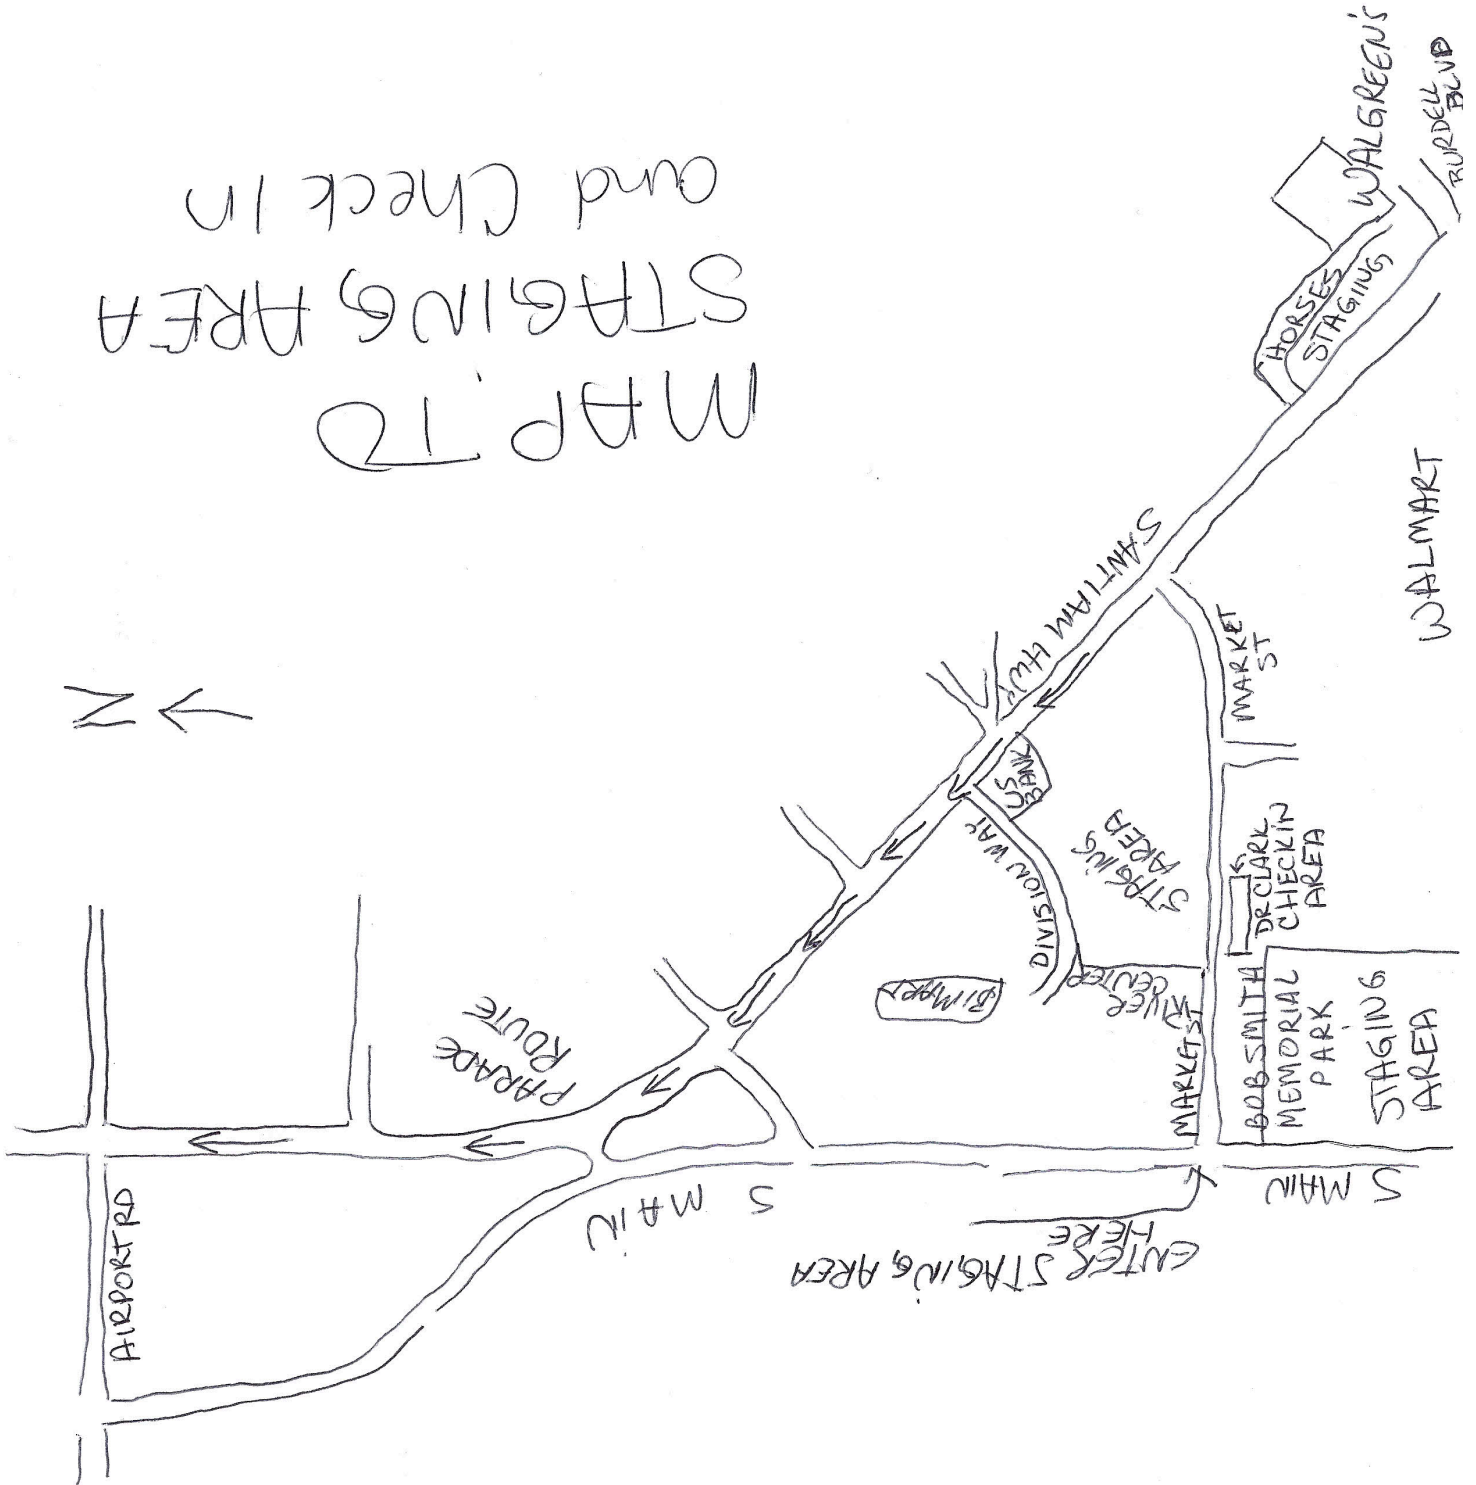 MAP TO
STAGING AREA
and Check In
N
WALGREEN'S
BURDELL
BLVD
HORSES
STAGING
WALMART
SANTIAM HWY
MARKET
ST
US
BANK
DIVISION WAY
STAGING
AREA
DR CLARK
CHECKIN
AREA
BIMART
RIVER
CENTER
MARKET ST
BOB SMITH
MEMORIAL
PARK
STAGING
AREA
PARADE
ROUTE
S MAIN
S MAIN
ENTER STAGING AREA
HERE
AIRPORT RD